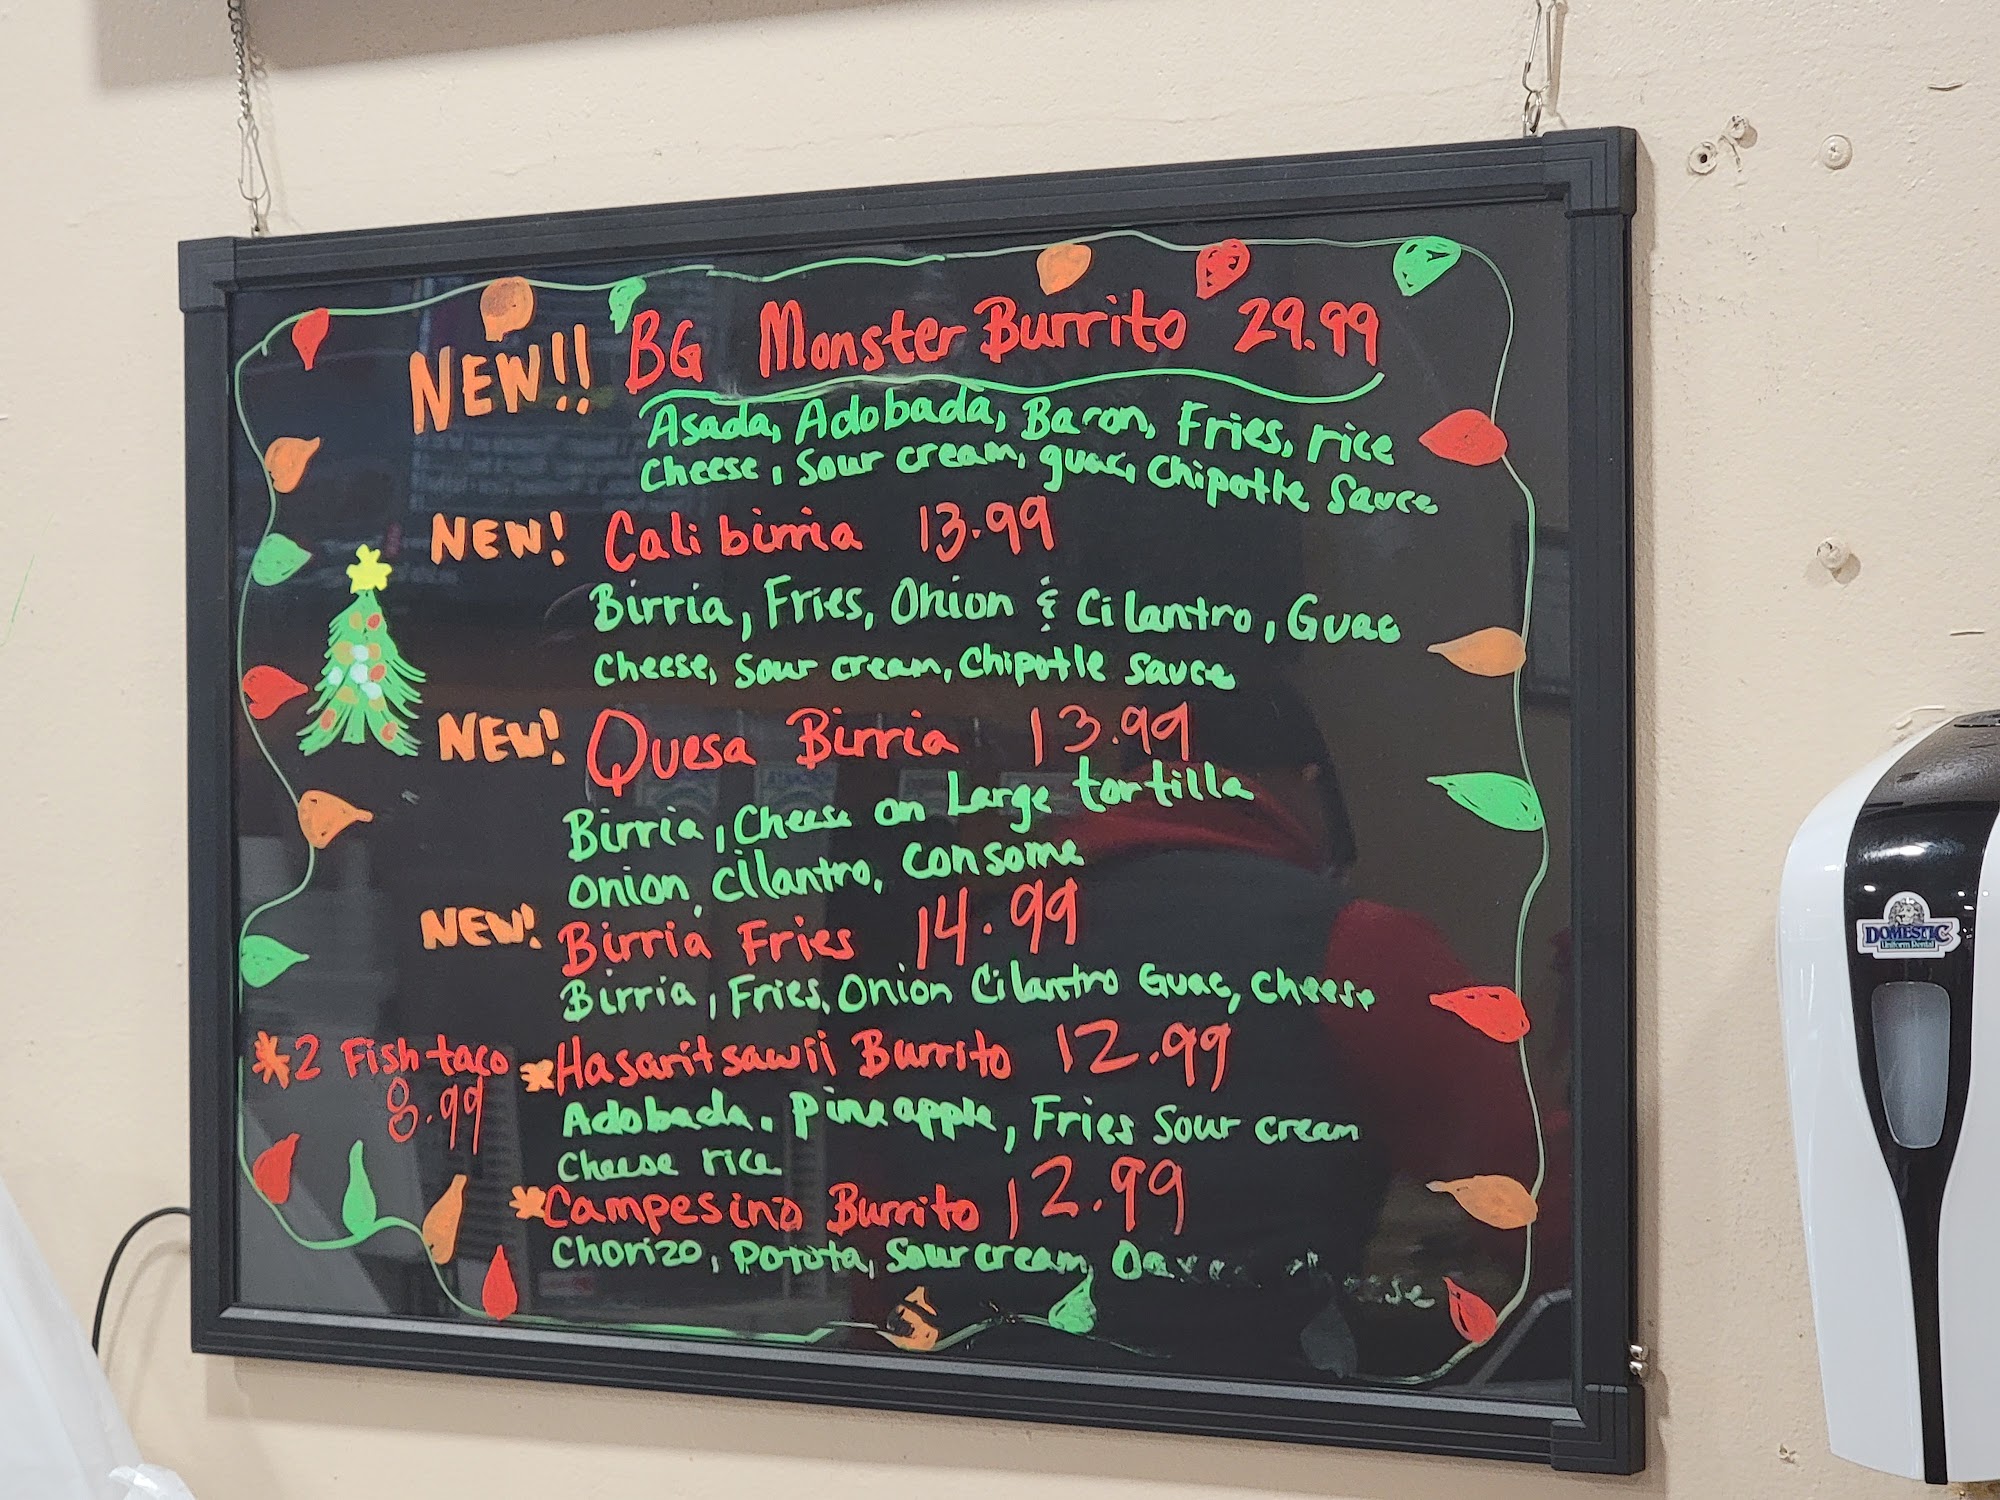 NEW!! BG Monster Burrito 29.99
Asada, Adobada, Baron, Fries, rice
Cheese, Sour cream, guac, Chipotle Sauce
NEW! Cali birria 13.99
Birria, Fries, Onion & Cilantro, Guac
Cheese, Sour cream, Chipotle Sauce
NEW! Quesa Birria 13.99
Birria, Cheese on Large tortilla
Onion, Cilantro, Consome
NEW! Birria Fries 14.99
Birria, Fries, Onion Cilantro Guac, Cheese
*2 Fish taco
8.99
*Hasaritsawii Burrito 12.99
Adobada, Pineapple, Fries Sour cream
Cheese rice
*Campesino Burrito 12.99
Chorizo, Potota, Sour cream, Oaxaca cheese
DOMESTIC
Uniform Rental